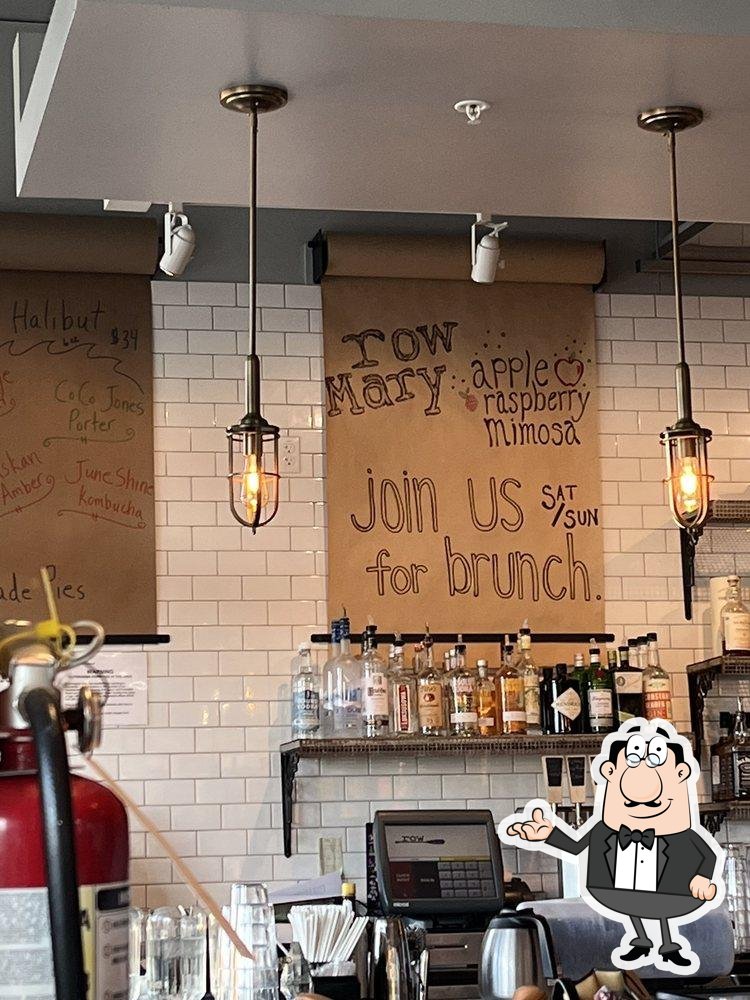 Halibut
$34
CoCo Jones
Porter
skan
Amber
JuneShine
Kombucha
ade Pies
row
Mary
apple
raspberry
mimosa
join us
SAT
/SUN
for brunch.
WARNING
row